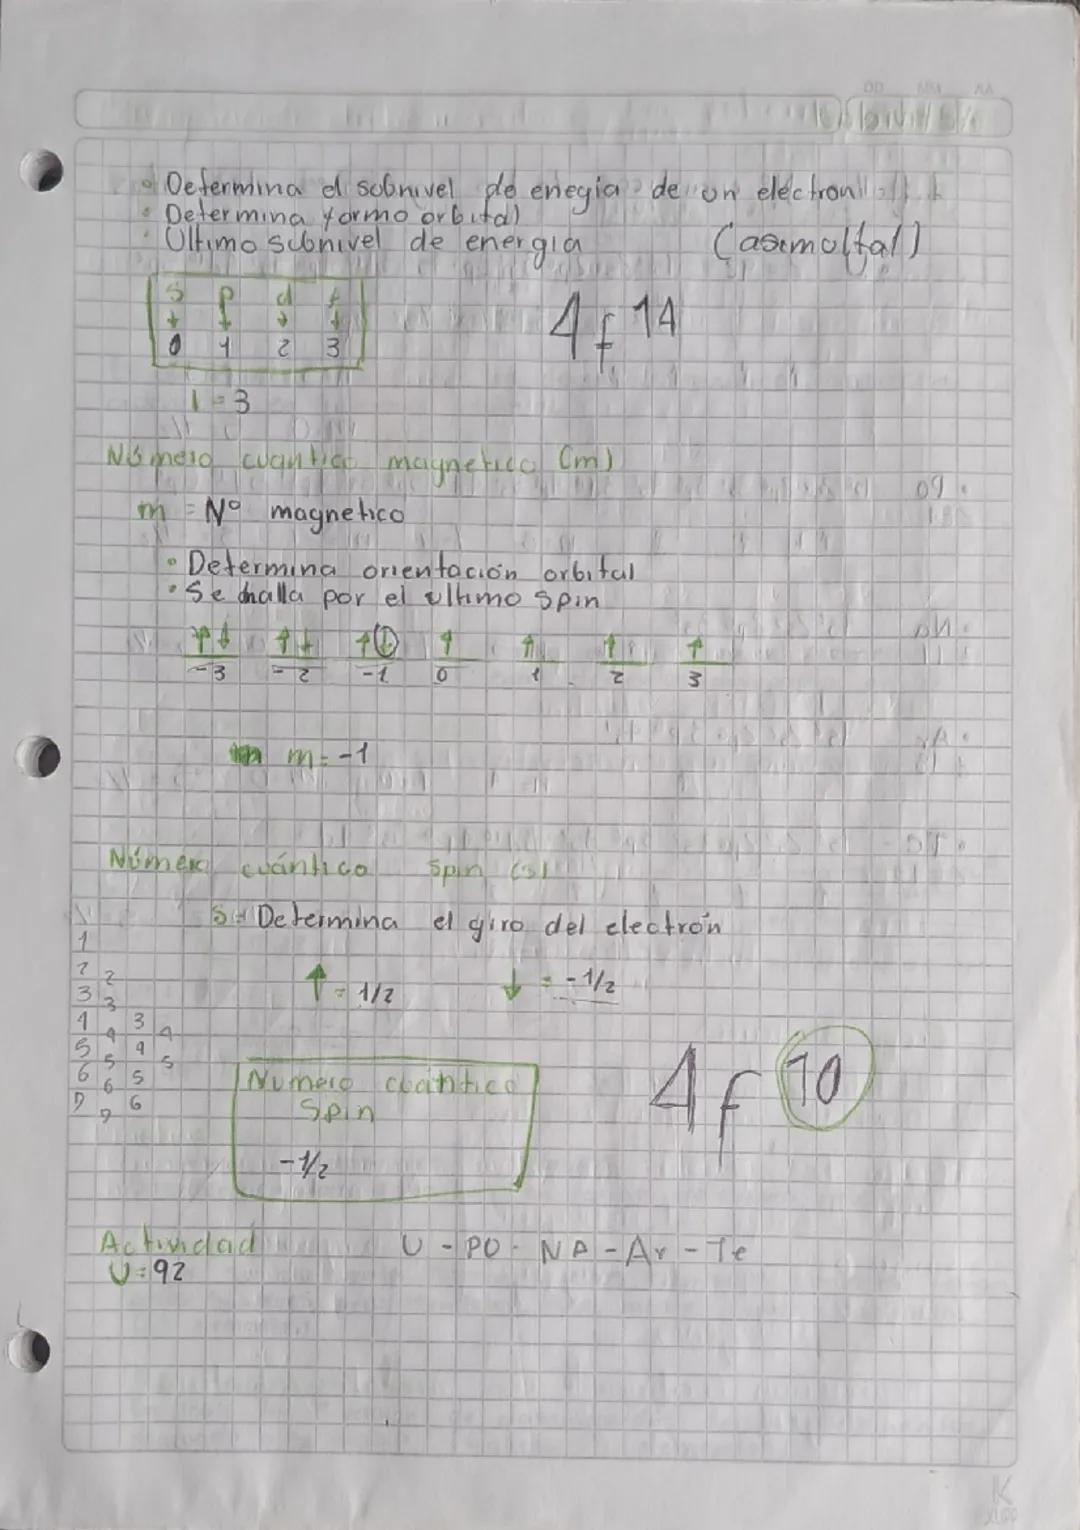 DD MM AA
• Determina el subnivel de enegia de un electron
• Determina formo orbital
• Ultimo subnivel de energia (asimoltal)
s p d f
↓ ↓ ↓ ↓
0 1 2 3
4 f 14
l = 3
Número cuantico magnetico (m)
m = Nº magnetico
• Determina orientación orbital
• Se halla por el ultimo spin
↑↓ ↑↓ ↑↓ ↑ ↑ ↑ ↑
-3 -2 -1 0 1 2 3
m = -1
Número cuántico spin (s)
s = Determina el giro del electrón
↑ = 1/2 ↓ = -1/2
1
2 2
3 3
4 4 3 4
5 5 4 5
6 6 5
7 7 6
Numero cuantico
Spin
-1/2
4 f 10
Actividad U - PO - NA - Ar - Te
U = 92